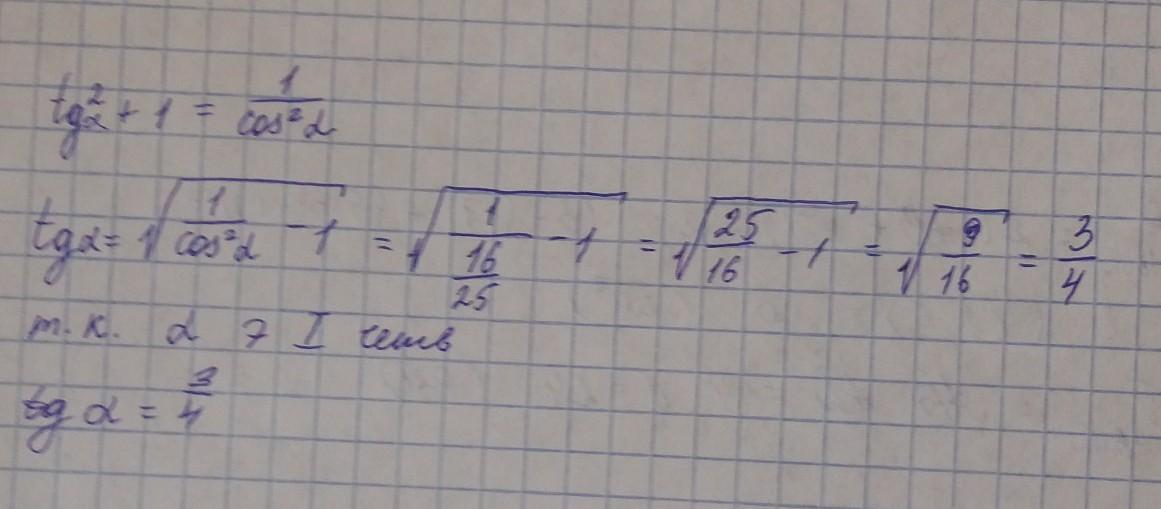 tg²α + 1 = 1/cos²α
tgα = √(1/cos²α − 1) = √(1/(16/25) − 1) = √(25/16 − 1) = √(9/16) = 3/4
т.к. α э I четв
tg α = 3/4